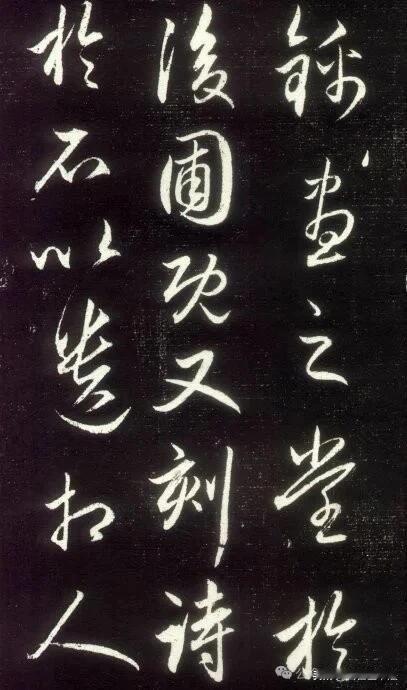 錦晝之堂於
後圃既又刻詩
於石以遺相人